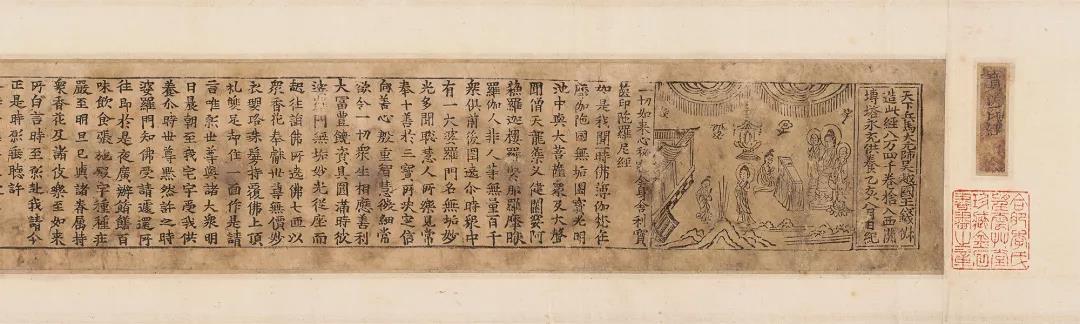 天下兵馬大元帥吳越國王錢俶
造此經八万四千卷捨入西關
塼塔永充供養乙亥八月日紀
一切如來心秘密全身舍利寶
篋印陀羅尼經
如是我聞一時佛薄伽梵在
摩伽陀國無垢園寶光明
池中與大菩薩衆及大聲
聞僧天龍藥叉健闥婆阿
蘇羅迦樓羅緊那羅摩睺
羅伽人非人等無量百千
衆俱前後圍遶尒時衆中
有一大婆羅門名無垢妙
光多聞聰慧人所樂見常
奉十善於三寶所決定信
向善心殷重智慧微細常
欲令一切衆生相應善利
大富豐饒資具圓滿時彼
婆羅門無垢妙光從座而
起往詣佛所遶佛七匝以
衆香花奉獻世尊無價妙
衣瓔珞珠鬘持覆佛上頂
礼雙足却住一面作是請
言唯願世尊與諸大衆明
日晨朝至我宅中受我供
養尒時世尊默然許之時
婆羅門知佛受請遽還所
住即於是夜廣辦餚饍百
味飲食張施殿宇種種莊
嚴至明旦已與諸眷屬持
衆香花及諸伎樂至如來
所白言時至願赴我請今
正是時願垂聽許